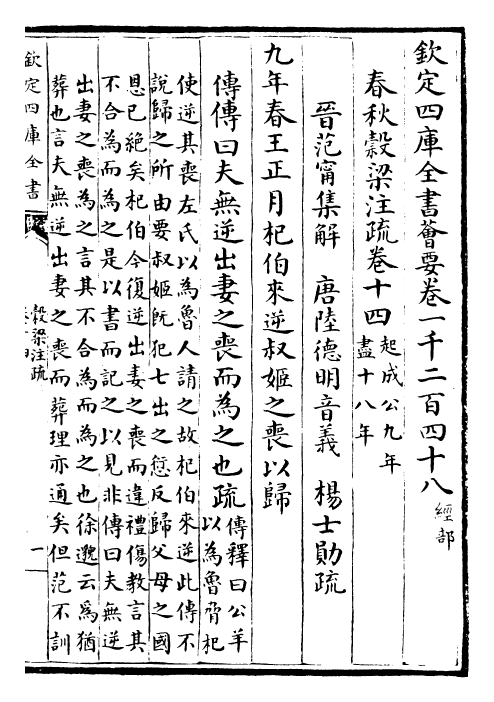 欽定四庫全書薈要卷一千二百四十八 經部
春秋穀梁注疏卷十四 起成公九年
盡十八年
晉范甯集解 唐陸德明音義 楊士勛疏
九年春王正月杞伯來逆叔姬之喪以歸
傳傳曰夫無逆出妻之喪而為之也疏 傳釋曰公羊
以為魯脅杞
使逆其喪左氏以為魯人請之故杞伯來逆此傳不
說歸之所由要叔姬既犯七出之愆反歸父母之國
恩已絕矣杞伯今復逆出妻之喪而違禮傷教言其
不合為而為之是以書而記之以見非傳曰夫無逆
出妻之喪為之言其不合為而為之也徐邈云為猶
葬也言夫無逆出妻之喪而葬理亦通矣但范不訓
欽定四庫全書
穀梁注疏
一